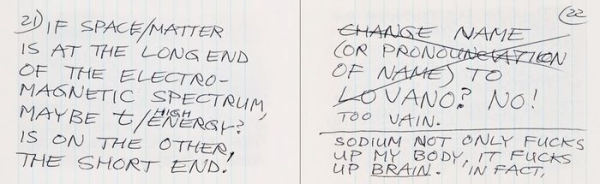 21) IF SPACE/MATTER
IS AT THE LONG END
OF THE ELECTRO-
MAGNETIC SPECTRUM,
MAYBE t/HIGH ENERGY?
IS ON THE OTHER,
THE SHORT END.
22
CHANGE NAME
(OR PRONOUNCIATION
OF NAME) TO
LOVANO? NO!
TOO VAIN.
SODIUM NOT ONLY FUCKS
UP MY BODY, IT FUCKS
UP BRAIN. IN FACT,